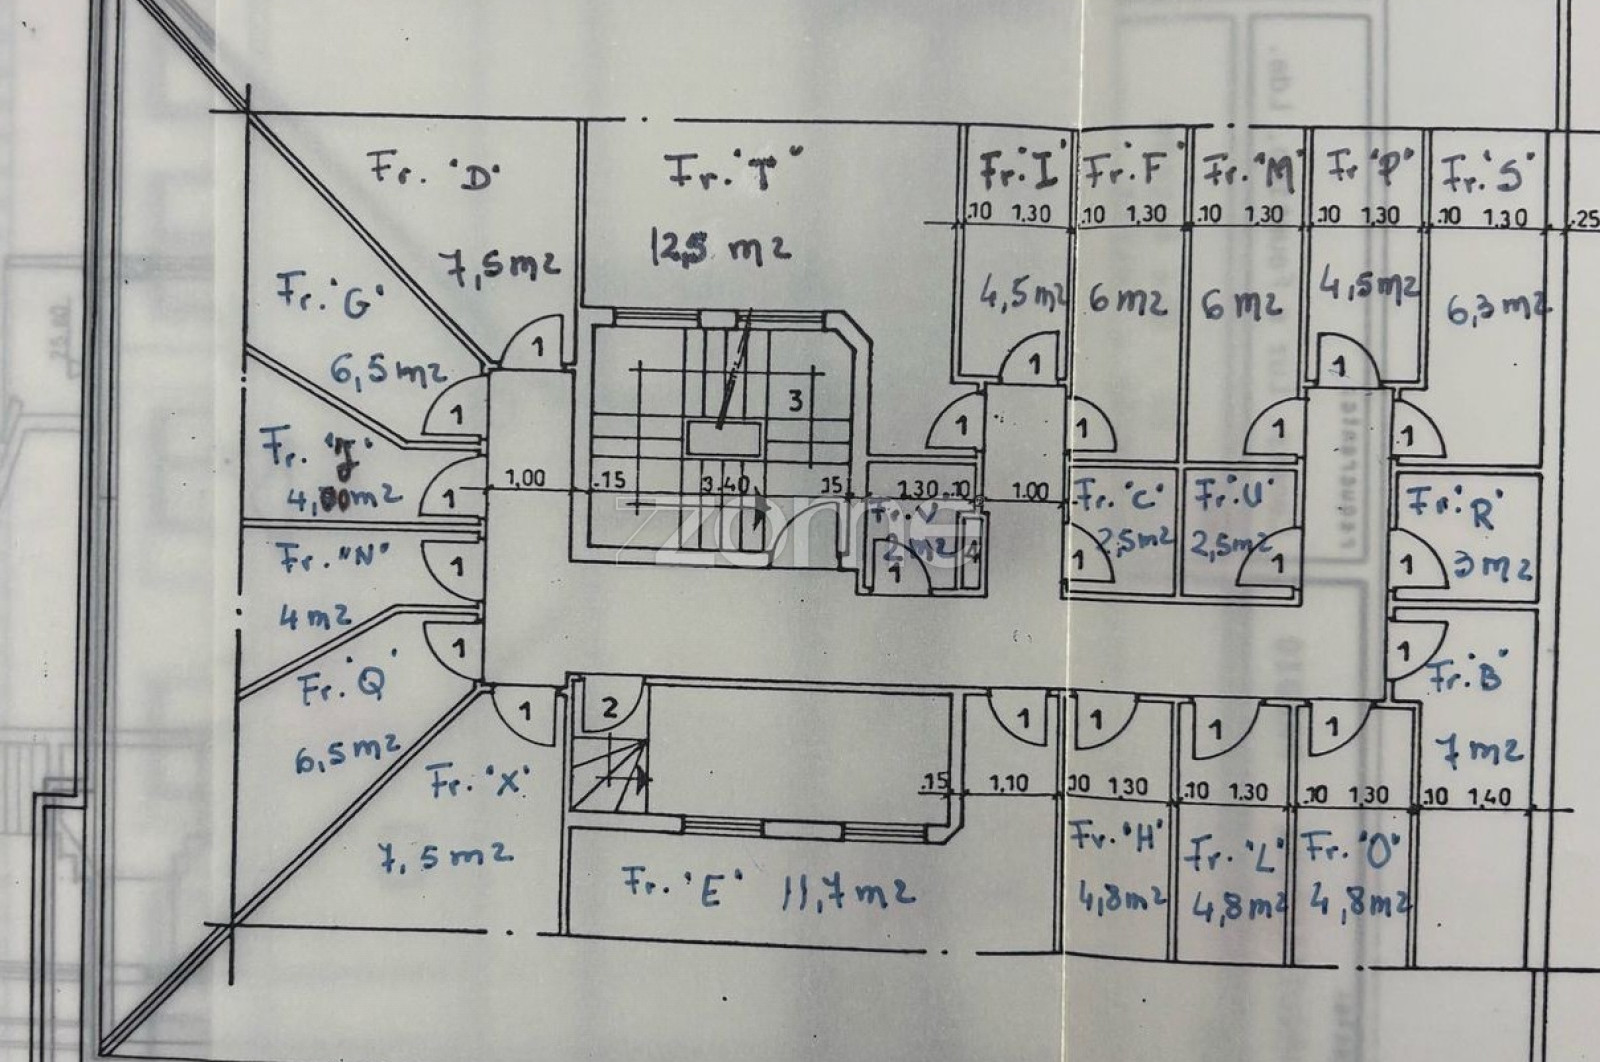 Fr. "D"
7,5 m2
Fr. "T"
12,5 m2
Fr. "I"
.10 1,30
4,5 m2
Fr. "F"
.10 1,30
6 m2
Fr. "M"
.10 1,30
6 m2
Fr "P"
.10 1,30
4,5 m2
Fr. "S"
.10 1.30
.25
6,3 m2
Fr. "G"
6,5 m2
1
1
3
1
1
1
1
1
1
Fr. "J"
4,00 m2
1
1,00
.15
3.40
.15
1.30 .10
1.00
zome
Fr. "V"
2 m2
1
4
Fr. "C"
2,5 m2
1
Fr. "U"
2,5 m2
1
Fr. "R"
3 m2
1
Fr. "N"
4 m2
1
Fr. "Q"
6,5 m2
1
1
2
1
1
1
1
1
Fr. "B"
7 m2
Fr. "X"
7,5 m2
.15
1,10
.10 1.30
.10 1.30
.10 1,30
.10 1,40
Fr. "E" 11,7 m2
Fr. "H"
4,8 m2
Fr. "L"
4,8 m2
Fr. "O"
4,8 m2